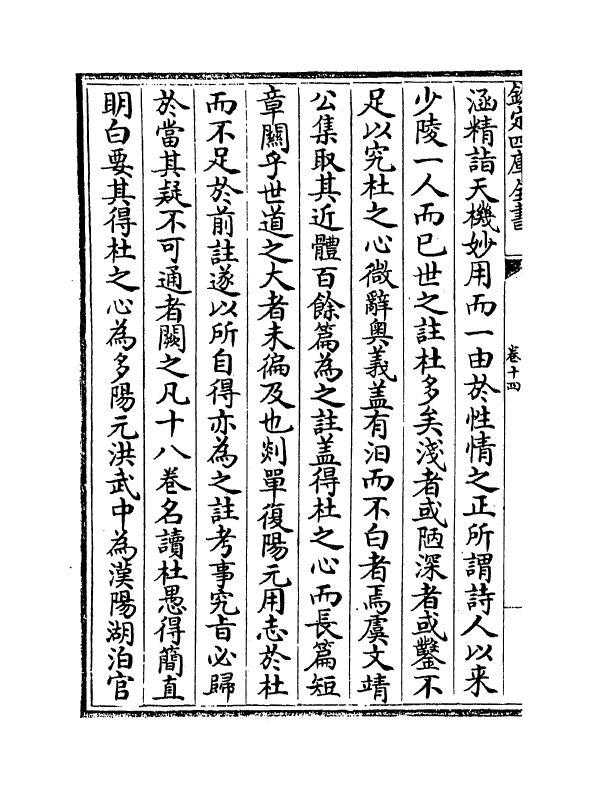 欽定四庫全書
卷十四
涵精詣天機妙用而一由於性情之正所謂詩人以來
少陵一人而已世之註杜多矣淺者或陋深者或鑿不
足以究杜之心微辭奧義蓋有汨而不白者焉虞文靖
公集取其近體百餘篇為之註蓋得杜之心而長篇短
章關乎世道之大者未徧及也剡單復陽元用志於杜
而不足於前註遂以所自得亦為之註考事究旨必歸
於當其疑不可通者闕之凡十八卷名讀杜愚得簡直
明白要其得杜之心為多陽元洪武中為漢陽湖泊官